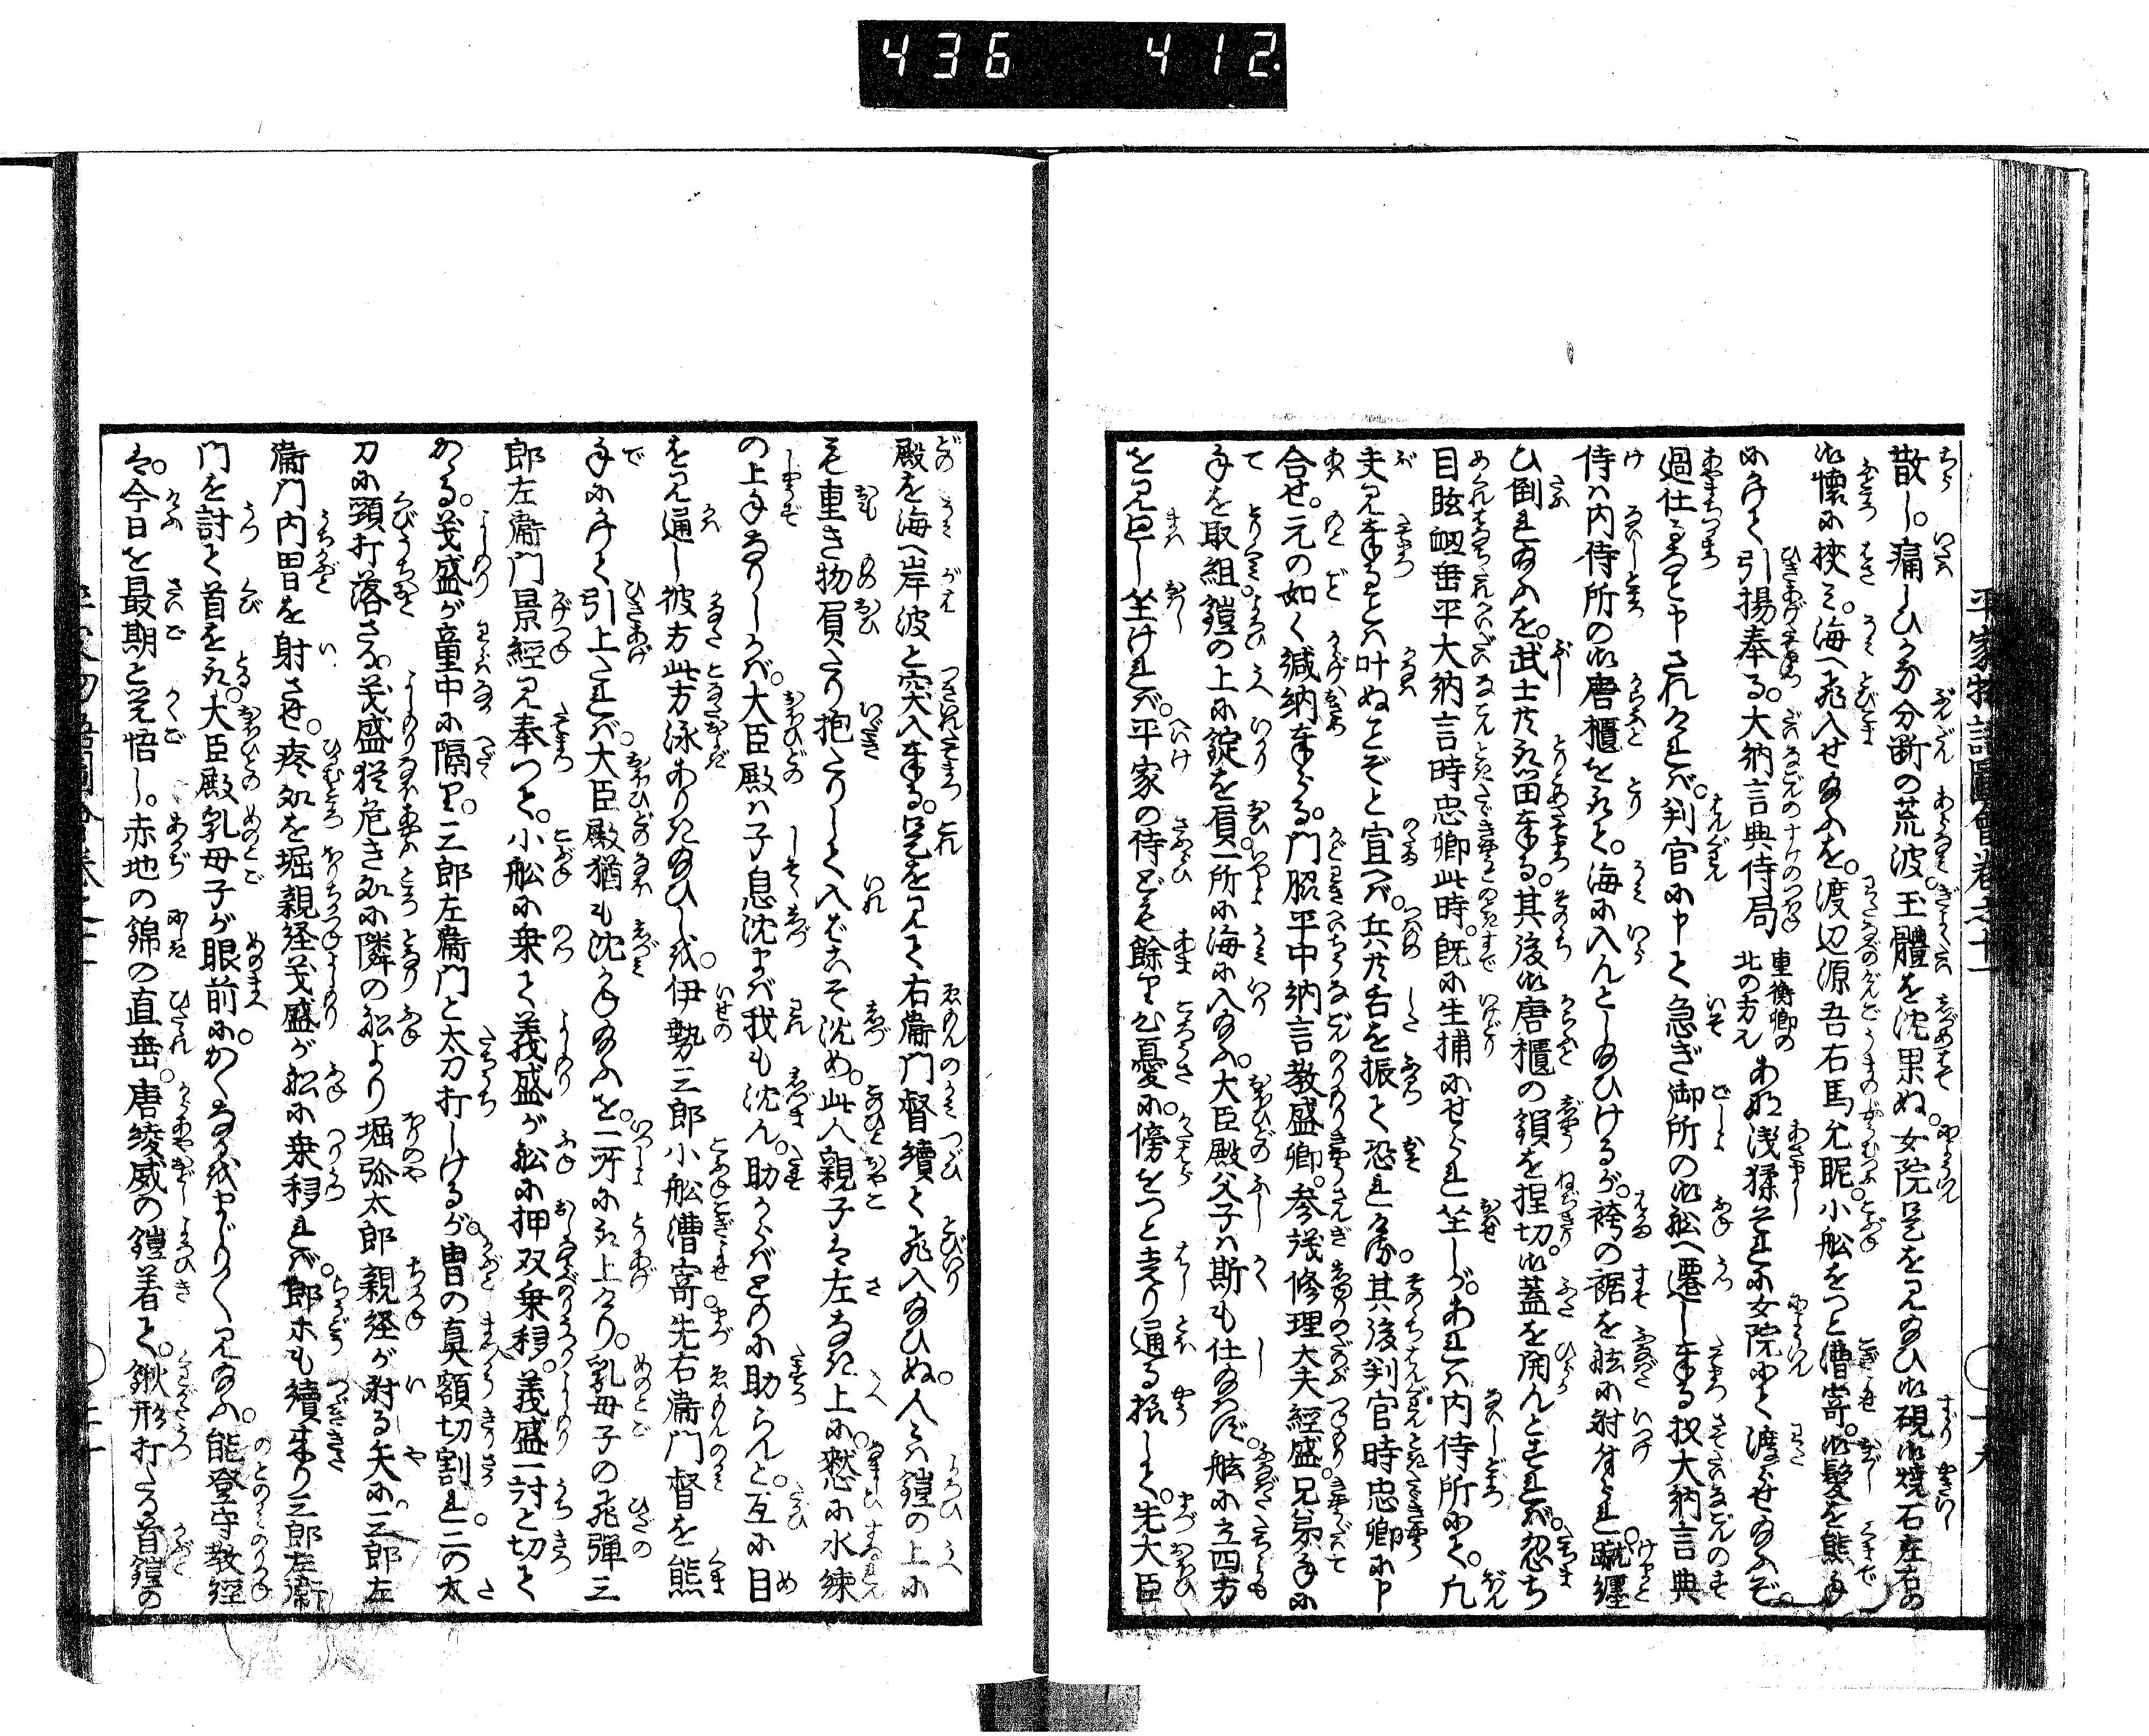 436 412.
平家物語圖會巻之十一
散し。痛しひかな分断の荒波。玉體を沈果ぬ。女院是を見給ひ御硯御焼石左右の
御懐に挾み。海へ飛入せ給ふを。渡辺源吾右馬允眤。小舩をつと漕寄。御髪を熊手
にかけて引揚奉る。大納言典侍局 重衡卿の北の方也 あな浅猿それは女院にて渡らせ給ふぞ。
過仕るなと申されければ。判官に申て急ぎ御所の御舩へ遷し奉る扨大納言典
侍は内侍所の御唐櫃を取て。海に入んとし給ひけるが。袴の裾を舷に射付られ。蹴纒
ひ倒れ給ふを。武士共取留奉る。其後御唐櫃の鎖を捏切。御蓋を開んとすれば。忽ち
目眩衂垂平大納言時忠卿此時。既に生捕にせられ坐しが。あれは内侍所にて。凡
夫見奉ることは叶ぬことぞと宣へば。兵共舌を振て恐れける。其後判官時忠卿に申
合せ。元の如く緘納奉らる。門脇平中納言教盛卿。参議修理大夫經盛。兄弟手に
手を取組。鎧の上に錠を負。一所に海に入給ふ。大臣殿父子は斯も仕給はず。舷に立四方
を見回し坐ければ。平家の侍ども餘り心憂に。傍をつと走り通る振して。先大臣
殿を海へ岸波と突入奉る。是を見て右衞門督續て飛入給ひぬ。人々は鎧の上に
も重き物負たり抱たりして入ばこそ沈め。此人親子は左なき上に。憗に水練
の上手なりしかば。大臣殿は子息沈まば我も沈ん。助からばともに助らんと。互に目
を見通し彼方此方泳ありき給ひしを。伊勢三郎小舩漕寄。先右衞門督を熊
手にかけて引上ければ。大臣殿猶も沈かね給ふを。一所に取上けり。乳母子の飛彈三
郎左衞門景經見奉つて。小舩に乗て義盛が舩に押双乗移。義盛一討と切て
かゝる。義盛が童中に隔り。三郎左衞門と太刀打しけるが。冑の真額切割れ。二の太
刀に頸打落さる。義盛猶危き処に隣の舩より堀弥太郎親経が射る矢に。三郎左
衞門内冑を射させ。疼処を堀親経義盛が舩に乗移れば。郎ホも續来り三郎左衞
門を討て首を取。大臣殿乳母子が眼前に。かくなるをまじ〳〵見給ふ。能登守教經
は。今日を最期と覚悟し。赤地の錦の直垂。唐綾威の鎧着て。鍬形打たる首鎧の